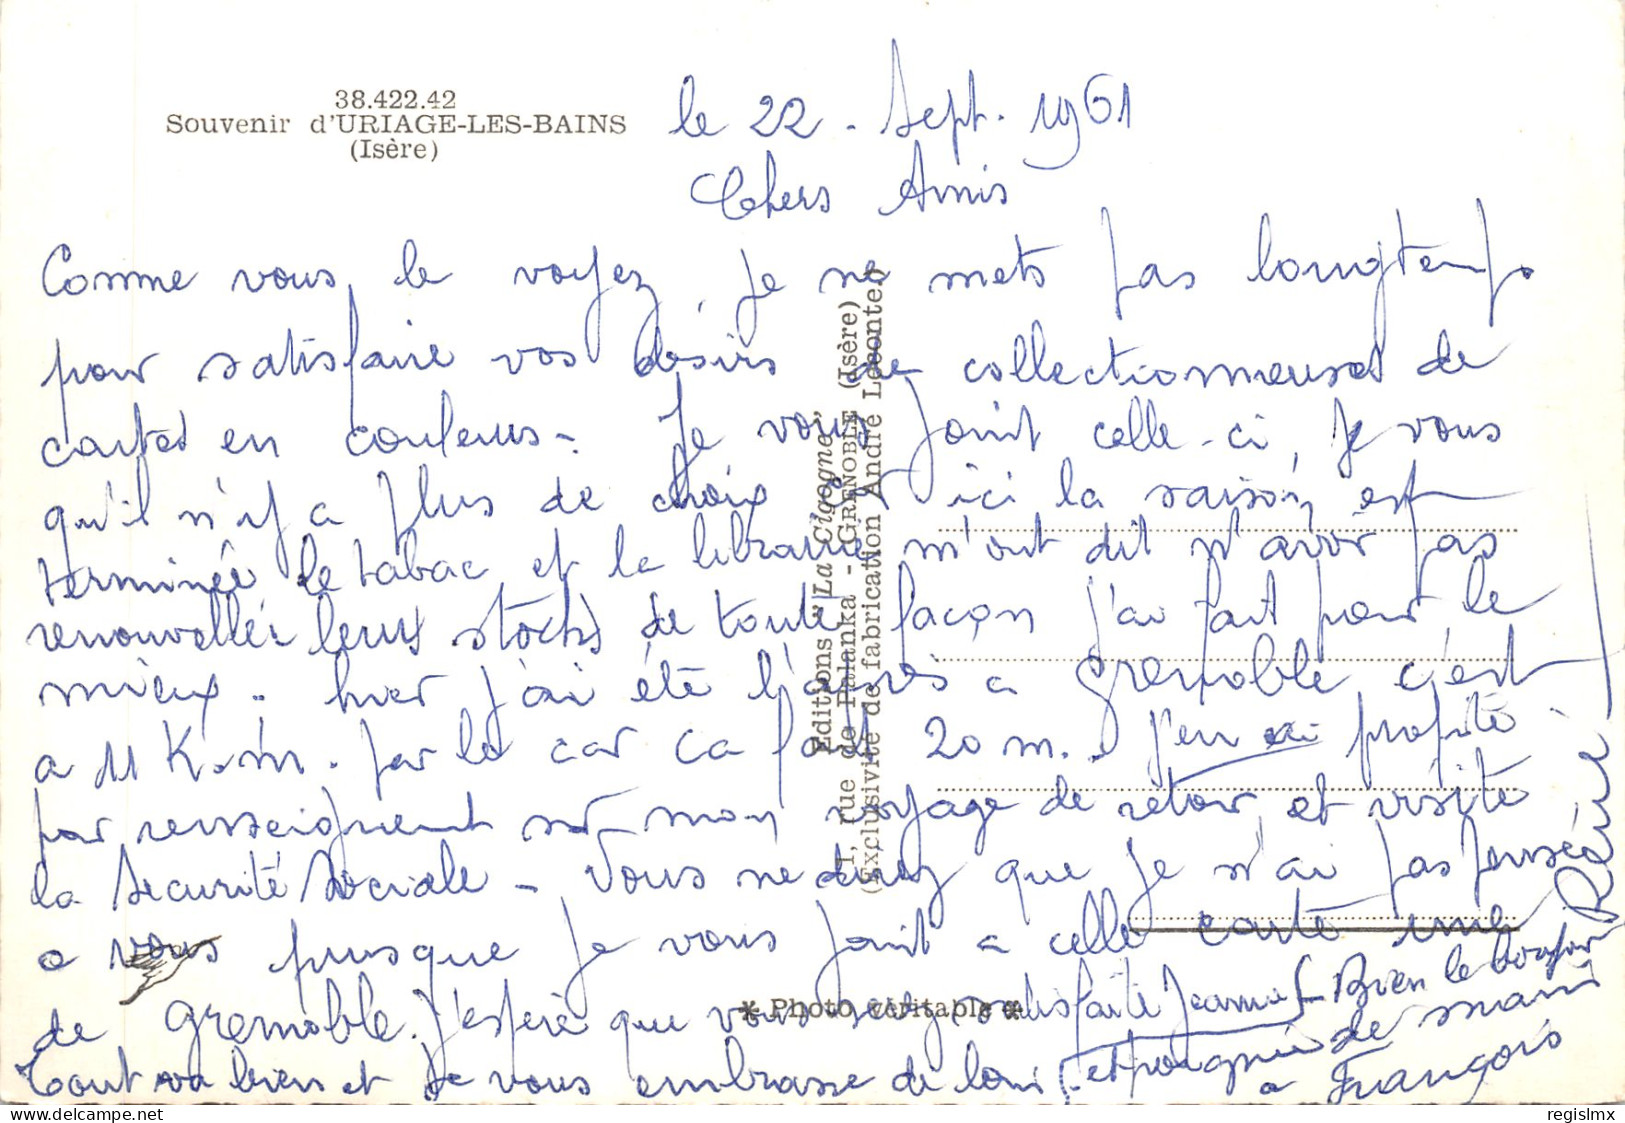 38.422.42
Souvenir d'URIAGE-LES-BAINS
(Isère)
le 22 - Sept. 1961
Chers Amis
Comme vous le voyez, je ne mets pas longtemps
pour satisfaire vos désirs de collectionneuses de
cartes en couleurs - Je vous joint celle-ci, je vous
qu'il n'y a plus de choix ici la saison est
terminée le tabac et la librairie m'ont dit n'avoir pas
renouveller leurs stocks de toute façon j'ai fait pour le
mieux. hier j'ai été l'après à Grenoble c'est
a 11 K.m. par le car ca fait 20 m. j'en ai profité
par renseignement sur mon voyage de retour, et visite
la Sécurité Sociale - Vous ne direz que je n'ai pas pensée
a vous puisque je vous joint a celle carte une
de Grenoble. J'espère que vous serez satisfaite
Tout va bien et je vous embrasse de loin
Bien le bonjour
et poignée de main
a François
Editions "La Cigogne"
1, rue de Palanka - GRENOBLE (Isère)
(Exclusivité de fabrication André Leconte)
* Photo véritable *
regislmx
delcampe.net